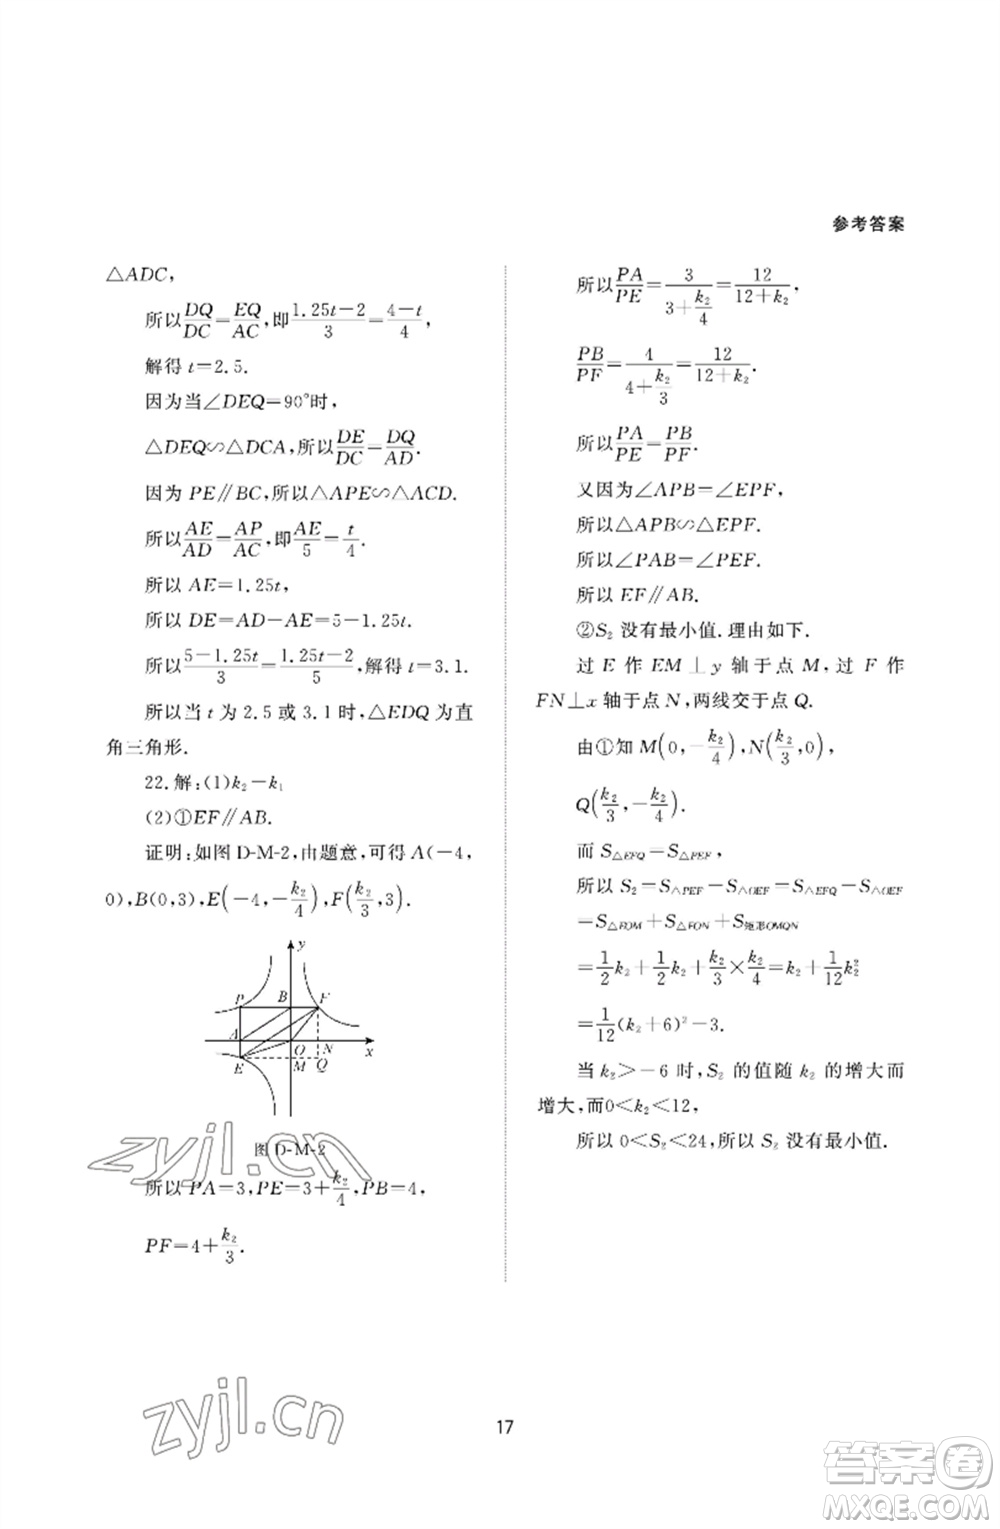 参考答案
△ADC,
所以DQ/DC=EQ/AC,即(1.25t-2)/3=(4-t)/4,
解得 t=2.5.
因为当∠DEQ=90°时,
△DEQ∽△DCA,所以DE/DC=DQ/AD.
因为 PE∥BC,所以△APE∽△ACD.
所以AE/AD=AP/AC,即AE/5=t/4.
所以 AE=1.25t,
所以 DE=AD-AE=5-1.25t.
所以(5-1.25t)/3=(1.25t-2)/5,解得 t=3.1.
所以当 t 为 2.5 或 3.1 时,△EDQ 为直
角三角形.
22.解:(1)k₂-k₁
(2)①EF∥AB.
证明:如图 D-M-2,由题意,可得 A(-4,
0),B(0,3),E(-4,-k₂/4),F(k₂/3,3).
y
P B F
A O N x
E M Q
图 D-M-2
所以 PA=3,PE=3+k₂/4,PB=4,
PF=4+k₂/3.
所以PA/PE=3/(3+k₂/4)=12/(12+k₂),
PB/PF=4/(4+k₂/3)=12/(12+k₂).
所以PA/PE=PB/PF.
又因为∠APB=∠EPF,
所以△APB∽△EPF.
所以∠PAB=∠PEF.
所以 EF∥AB.
②S₂ 没有最小值.理由如下.
过 E 作 EM⊥y 轴于点 M,过 F 作
FN⊥x 轴于点 N,两线交于点 Q.
由①知 M(0,-k₂/4),N(k₂/3,0),
Q(k₂/3,-k₂/4).
而 S△EFQ=S△PEF,
所以 S₂=S△PEF-S△OEF=S△EFQ-S△OEF
=S△EOM+S△FON+S矩形OMQN
=1/2k₂+1/2k₂+k₂/3×k₂/4=k₂+1/12k₂²
=1/12(k₂+6)²-3.
当 k₂>-6 时,S₂ 的值随 k₂ 的增大而
增大,而0<k₂<12,
所以 0<S₂<24,所以 S₂ 没有最小值.
zyjl.cn
zyjl.cn
17
答案圈
MXQE.COM